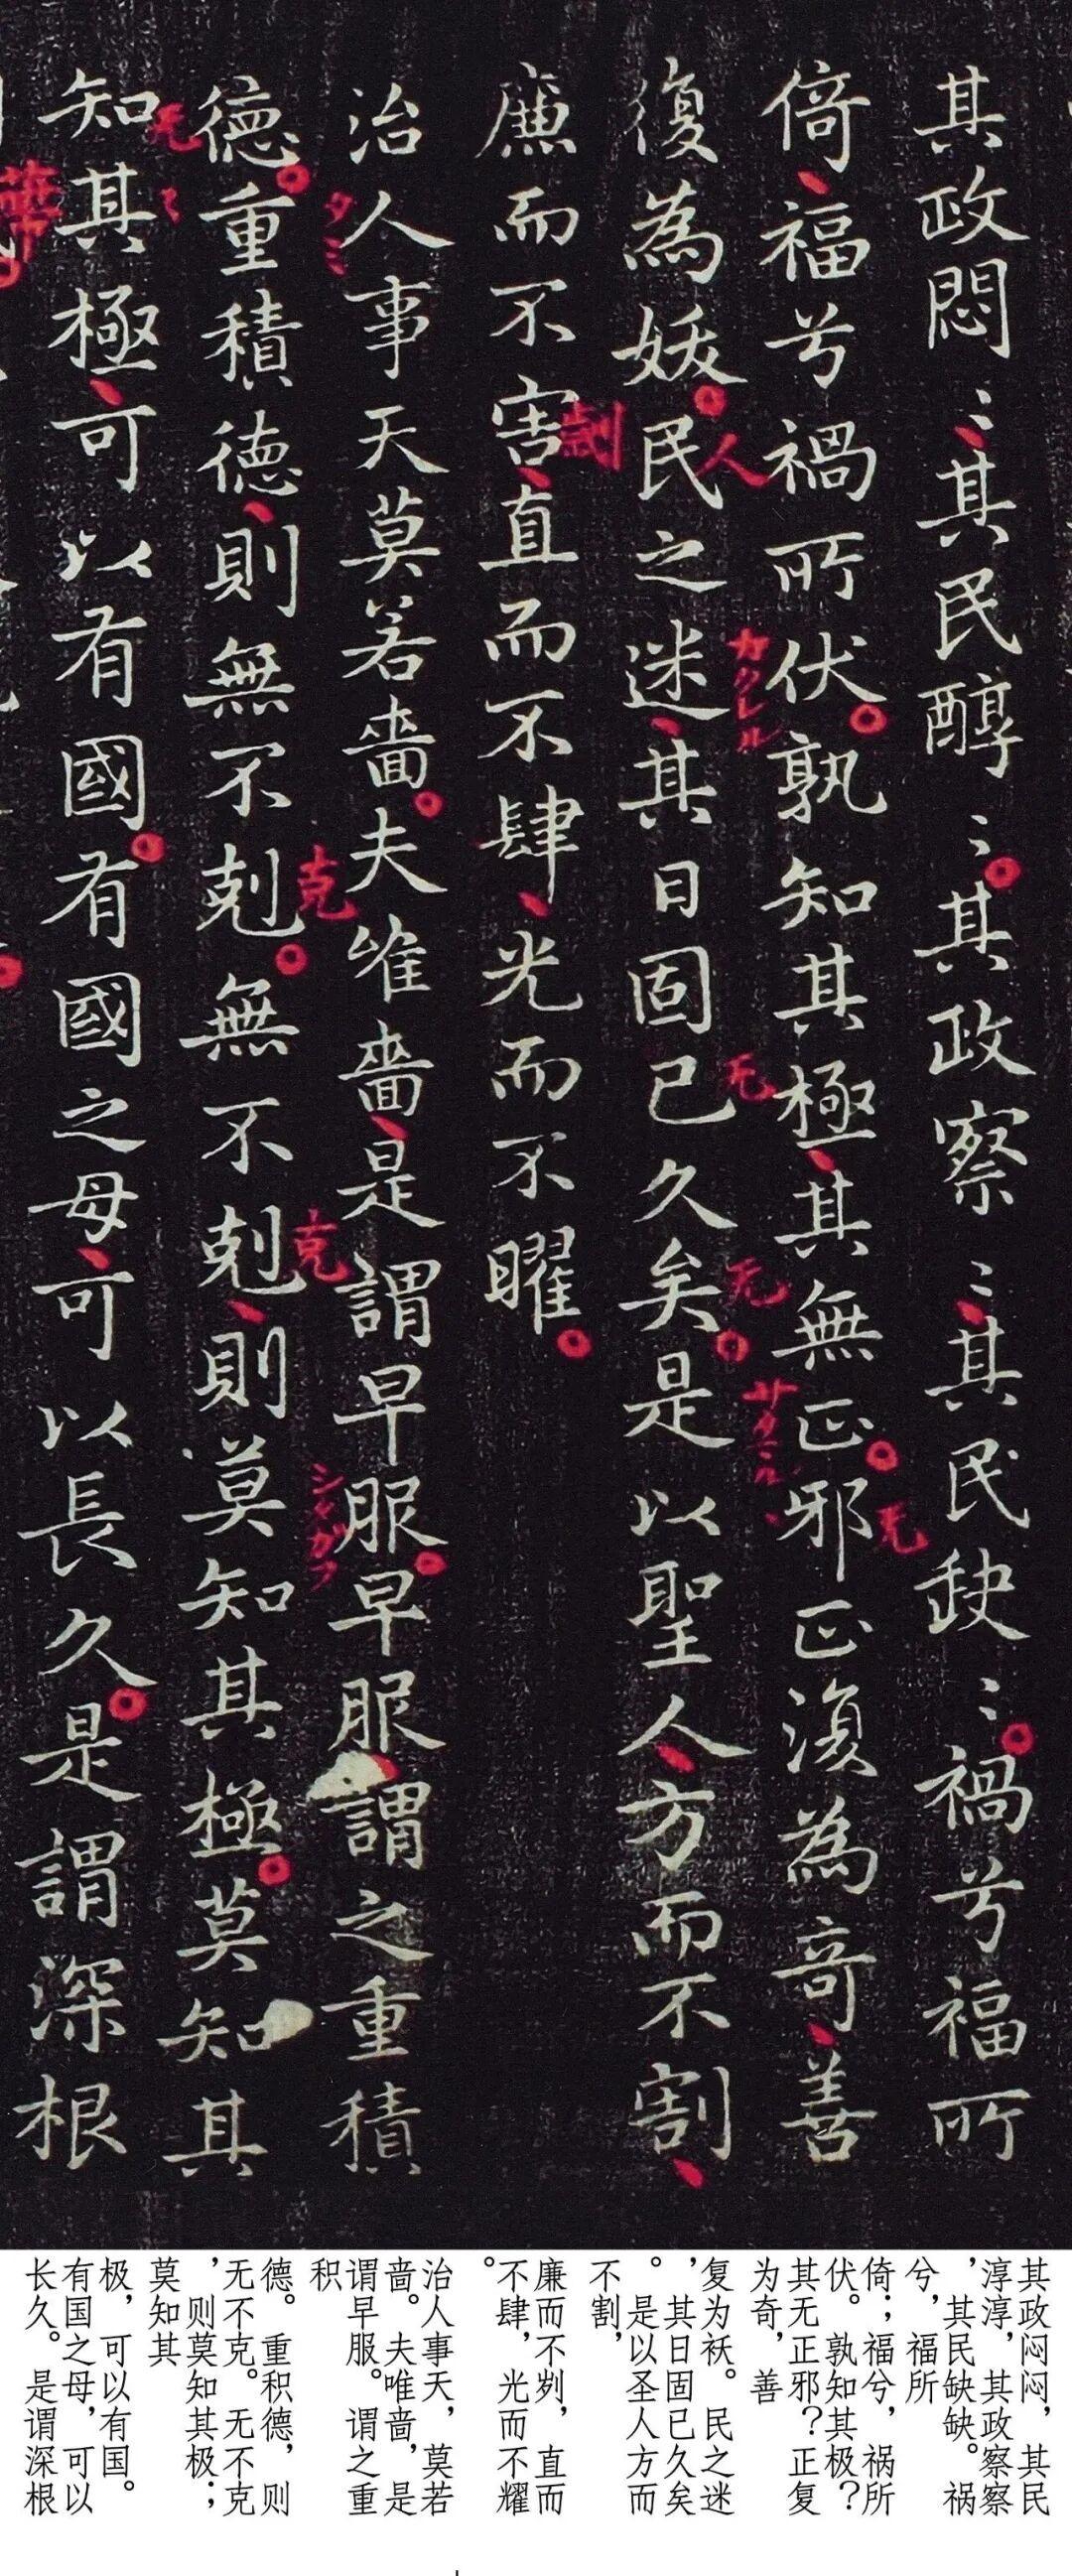 其政悶〻其民醇〻其政察〻其民缺〻禍兮福所
倚福兮禍所伏孰知其極其無正邪正復為奇善
復為妖民之迷其日固已久矣是以聖人方而不割
廉而不害直而不肆光而不曜
治人事天莫若嗇夫唯嗇是謂早服早服謂之重積
德重積德則無不剋無不剋則莫知其極莫知其
知其極可以有國有國之母可以長久是謂深根
无
人
カクレル
无
无
サタミル
无
劌
タミ
克
克
シタガフ
无
其政闷闷，其民
淳淳，其政察察
，其民缺缺。祸
兮，福所
倚；福兮，祸所
伏。孰知其极？
其无正邪？正复
为奇，善
复为祅。民之迷
，其日固已久矣
。是以圣人方而
不割，
廉而不刿，直而
不肆，光而不耀
。
治人事天，莫若
啬。夫唯啬，是
谓早服。谓之重
积
德。重积德，则
无不克。无不克
，则莫知其极；
莫知其
极，可以有国。
有国之母，可以
长久。是谓深根